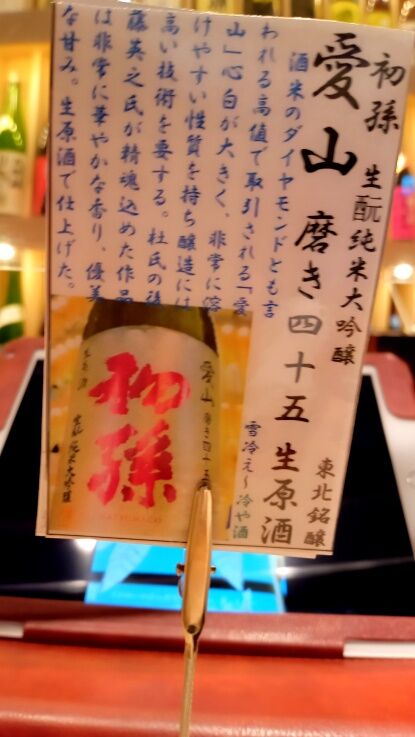 初孫 生酛純米大吟醸
愛山 磨き四十五 生原酒
東北銘醸
雪冷え～冷や酒
酒米のダイヤモンドとも言
われる高値で取引される「愛
山」心白が大きく、非常に溶
けやすい性質を持ち醸造には
高い技術を要する。杜氏の後
藤英之氏が精魂込めた作品
は非常に華やかな香り、優美
な甘み。生原酒で仕上げた。
愛山 磨き四十五
初孫
HATSUMAGO
生原酒